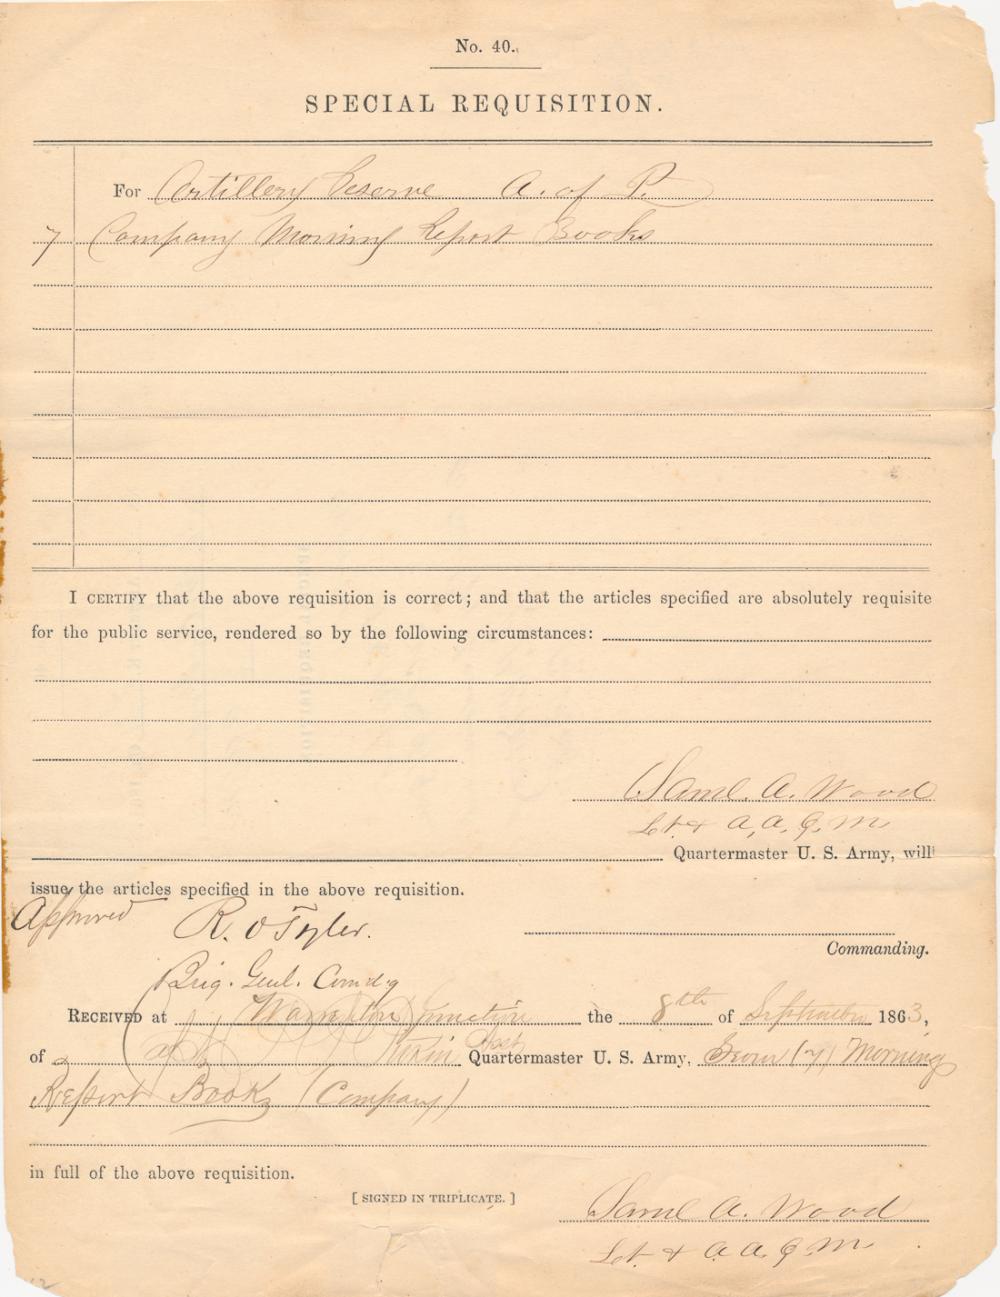 No. 40.
SPECIAL REQUISITION.
For Artillery Reserve A. of P.
7 Company Morning Report Books
I CERTIFY that the above requisition is correct; and that the articles specified are absolutely requisite
for the public service, rendered so by the following circumstances:
Saml. A. Wood
Lt. & A. A. Q. M.
Quartermaster U. S. Army, will
issue the articles specified in the above requisition.
Approved R. O Tyler.
Commanding.
Brig. Genl. Comdg
RECEIVED at Warrenton Junction the 8th of September 1863,
of Asst Quartermaster U. S. Army, Seven (7) Morning
Report Books (Company)
in full of the above requisition.
[SIGNED IN TRIPLICATE.]
Saml A. Wood
Lt. & A. A. Q. M.